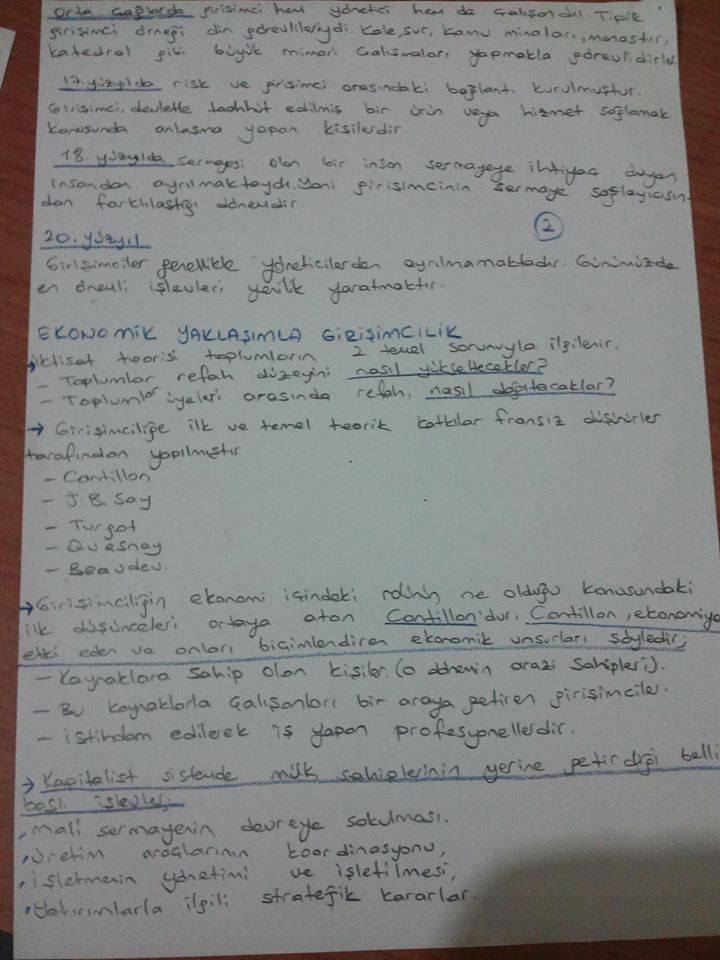 Orta Çağlarda girişimci hem yönetici hem de çalışandır. Tipik
girişimci örneği din görevlileriydi. Kale, sur, kamu binaları, manastır,
katedral gibi büyük mimari çalışmaları yapmakla görevlidirler.
17. yüzyılda risk ve girişimci arasındaki bağlantı kurulmuştur.
Girişimci, devletle taahhüt edilmiş bir ürün veya hizmet sağlamak
konusunda anlaşma yapan kişilerdir.
18. yüzyılda sermayesi olan bir insan sermayeye ihtiyaç duyan
insandan ayrılmaktaydı. Yani girişimcinin sermaye sağlayıcısın-
dan farklılaştığı dönemdir
2
20. yüzyıl
Girişimciler genellikle yöneticilerden ayrılmamaktadır. Günümüzde
en önemli işlevleri yenilik yaratmaktır.
EKONOMİK YAKLAŞIMLA GİRİŞİMCİLİK
→ iktisat teorisi toplumların 2 temel sorunuyla ilgilenir.
- Toplumlar refah düzeyini nasıl yükseltecekler?
- Toplumlar üyeleri arasında refahı nasıl dağıtacaklar?
→ Girişimciliğe ilk ve temel teorik katkılar fransız düşünürler
tarafından yapılmıştır
- Cantillon
- J.B. Say
- Turgot
- Quesnay
- Beaudeu.
→ Girişimciliğin ekonomi içindeki rolünün ne olduğu konusundaki
ilk düşünceleri ortaya atan Cantillon'dur. Cantillon, ekonomiye
etki eden ve onları biçimlendiren ekonomik unsurları şöyledir;
- Kaynaklara sahip olan kişiler. (o dönemin arazi sahipleri).
- Bu kaynaklarla çalışanları bir araya getiren girişimciler.
- istihdam edilerek iş yapan profesyonellerdir.
→ Kapitalist sistemde mülk sahiplerinin yerine getirdiği belli
başlı işlevler;
, mali sermayenin devreye sokulması.
, üretim araçlarının koordinasyonu,
, işletmenin yönetimi ve işletilmesi,
, yatırımlarla ilgili stratejik kararlar.